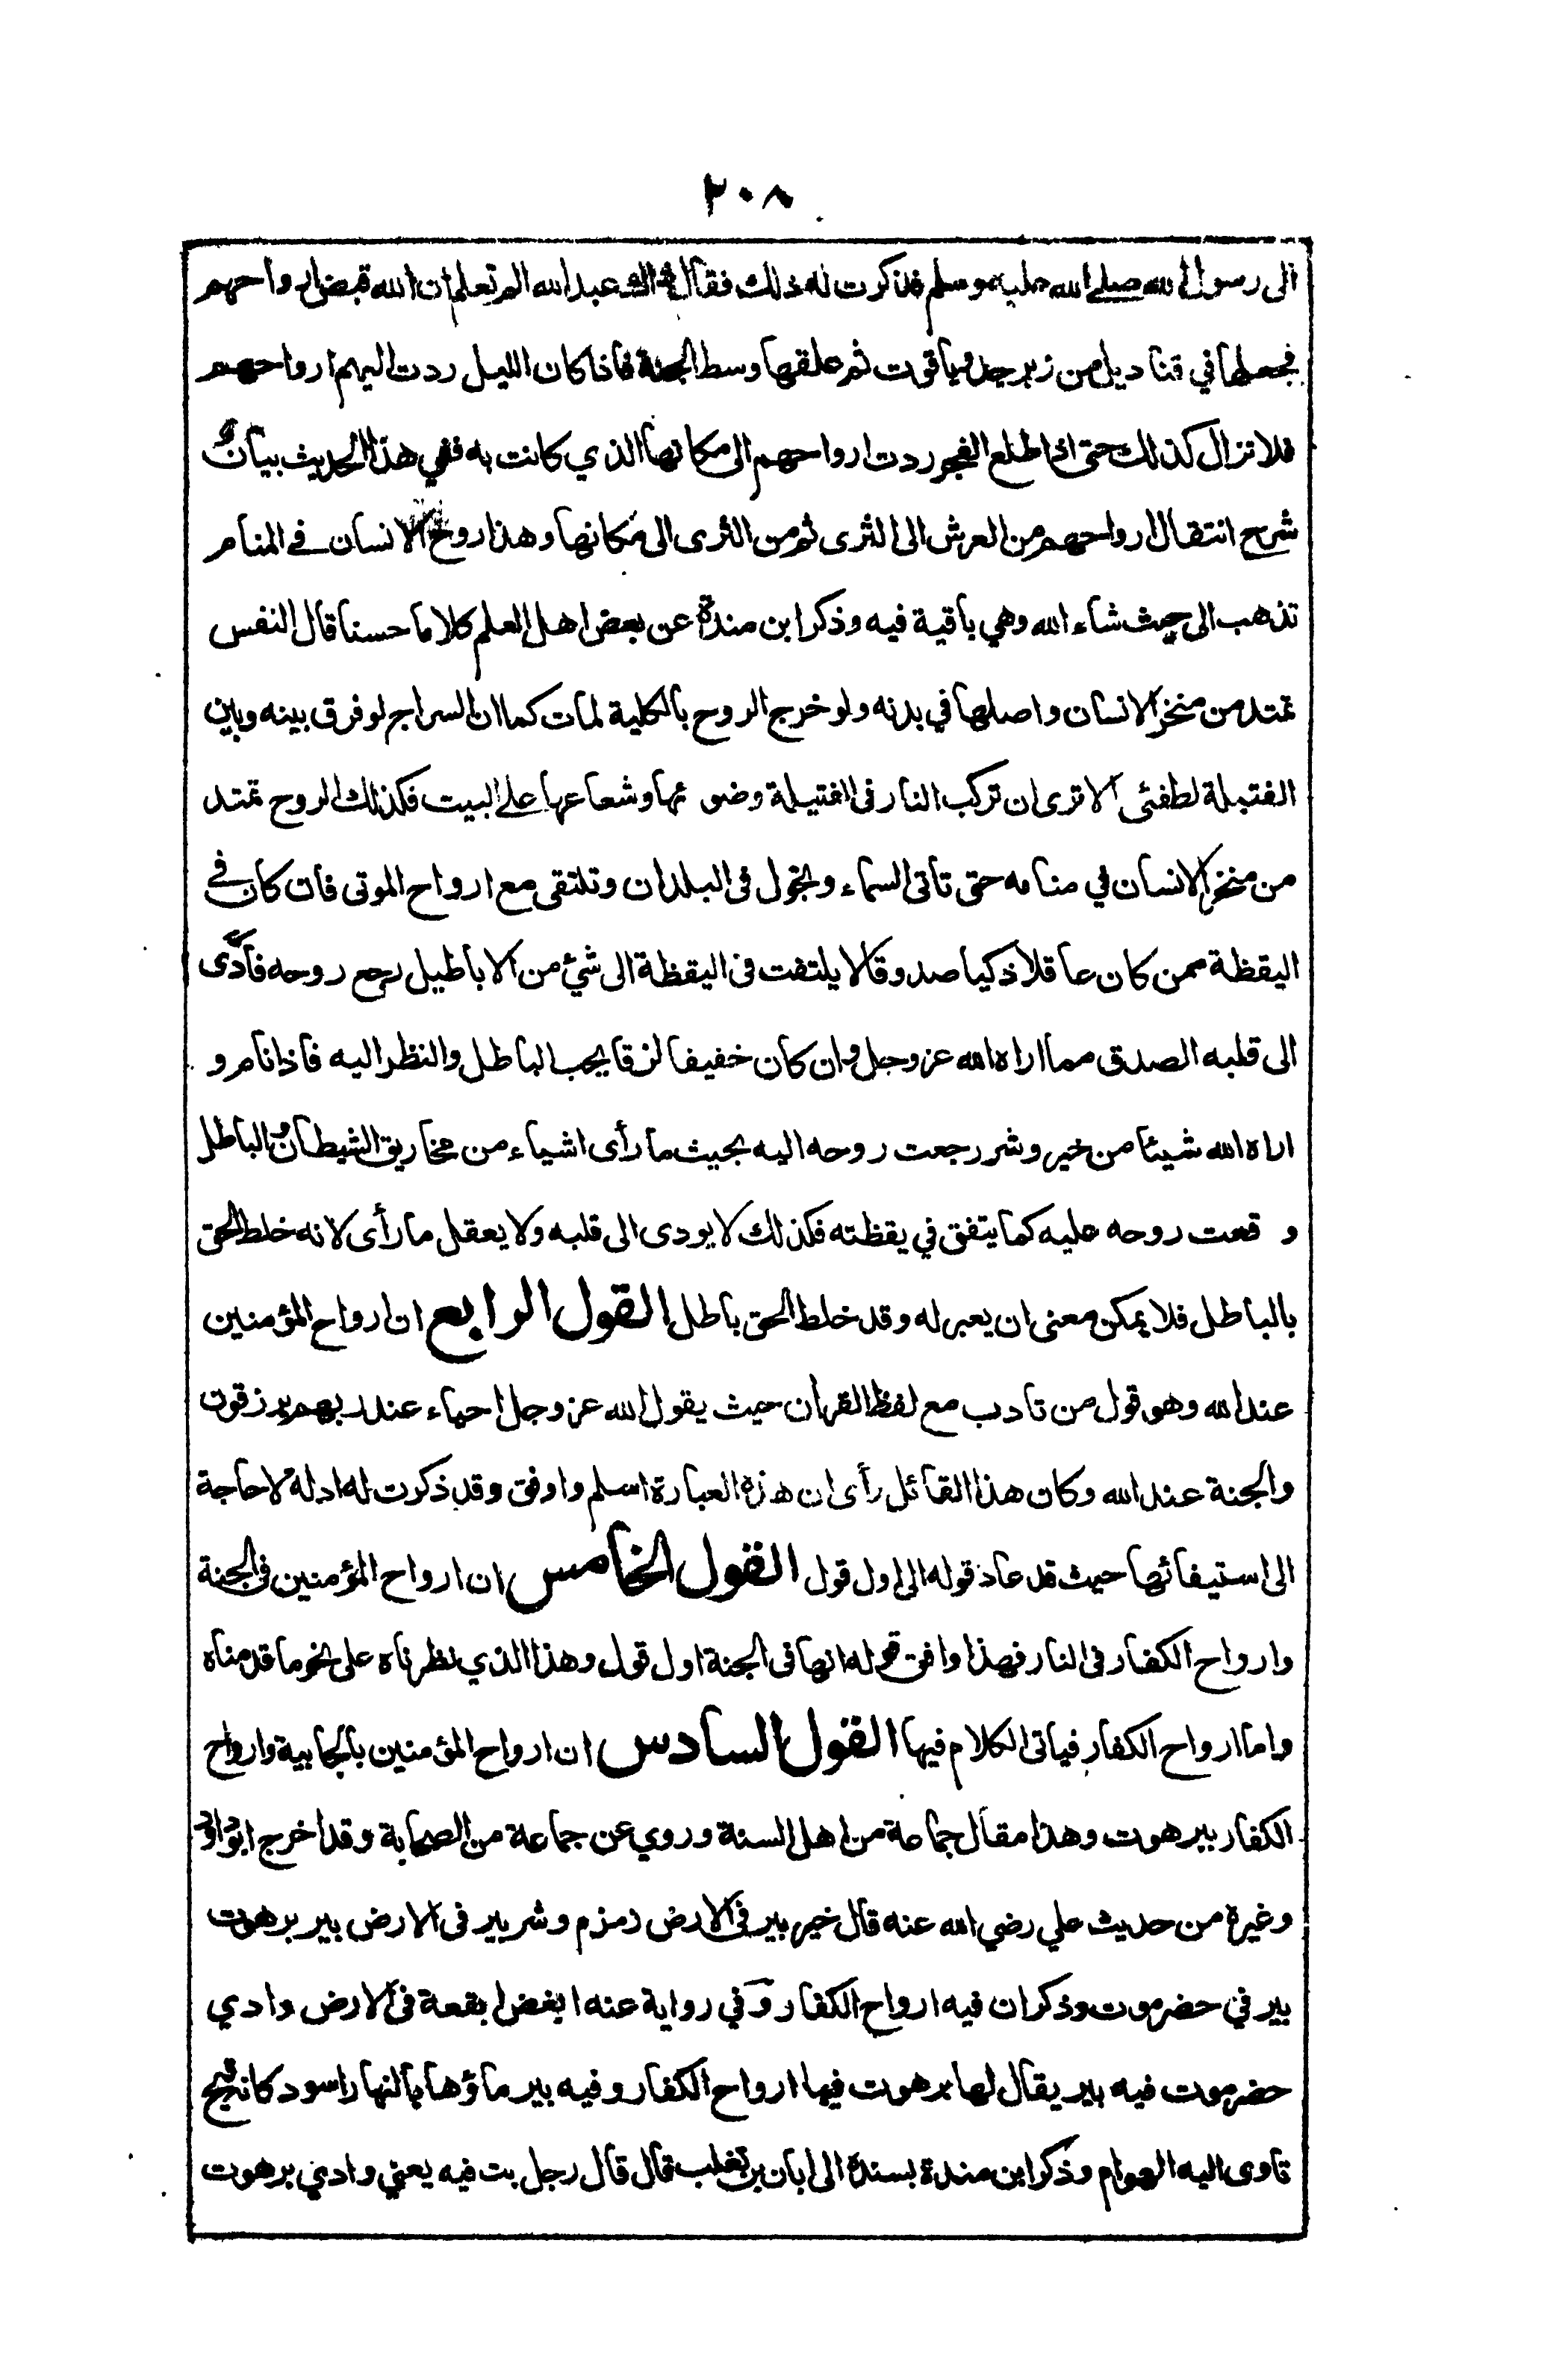 ٢٠٨
الى رسول الله صلى الله عليه وسلم فذكرت له ذلك فقال عبد الله الم تعلم ان الله قبض ارواحهم
فجعلها في قناديل من زبرجد وياقوت ثم علقها وسط الجنة فاذا كان الليل ردت اليهم ارواحهم
فلا تزال كذلك حتى اذا طلع الفجر ردت ارواحهم الى مكانها الذي كانت به ففي هذا الحديث بيان و
شرح انتقال ارواحهم من العرش الى الثرى ثم من الثرى الى مكانها وهذا روح الانسان في المنام
تذهب الى حيث شاء الله وهي باقية فيه وذكر ابن مندة عن بعض اهل العلم كلاما حسنا قال النفس
تمتد من منخر الانسان واصلها في بدنه ولو خرج الروح بالكلية لمات كما ان السراج لو فرق بينه وبين
الفتيلة لطفئى الا ترى ان تركب النار فى الفتيلة وضوئها وشعاعها على البيت فكذلك الروح تمتد
من منخر الانسان في منامه حتى تاتى السماء وتجول فى البلدان وتلتقى مع ارواح الموتى فان كان في
اليقظة ممن كان عاقلا ذكيا صدوقا لا يلتفت فى اليقظة الى شئ من الاباطيل رجع روحه فأدّى
الى قلبه الصدق مما اراه الله عز وجل وان كان خفيفا نزقا يحب الباطل والنظر اليه فاذا نام و
اراه الله شيئا من خير وشر رجعت روحه اليه بحيث ما رأى اشياء من مخاريق الشيطان والباطل
وقعت روحه عليه كما يتفق في يقظته فكذلك لا يودى الى قلبه ولا يعقل ما رأى لانه خلط الحق
بالباطل فلا يمكن معنى ان يعبر له وقد خلط الحق باطل القول الرابع ان ارواح المؤمنين
عند الله وهو قول من تادب مع لفظ القران حيث يقول الله عز وجل احياء عند ربهم يرزقون
والجنة عند الله وكان هذا القائل رأى ان هذه العبارة اسلم واوفق وقد ذكرت له ادلة لا حاجة
الى استيفائها حيث قد عاد قوله الى اول قول القول الخامس ان ارواح المؤمنين فى الجنة
وارواح الكفار فى النار فهذا وافق قوله انها فى الجنة اول قول وهذا الذي نظرناه على نحو ما قدمناه
واما ارواح الكفار فياتى الكلام فيها القول السادس ان ارواح المؤمنين بالجابية وارواح
الكفار ببرهوت وهذا مقال جماعة من اهل السنة وروي عن جماعة من الصحابة وقد اخرج ابو داود
وغيرة من حديث علي رضي الله عنه قال خير بير فى الارض زمزم وشر بير فى الارض بير برهوت
بير في حضرموت وذكر ان فيه ارواح الكفار وفي رواية عنه ابغض بقعة فى الارض وادي
حضرموت فيه بير يقال لها برهوت فيها ارواح الكفار وفيه بير ماؤها بالنهار اسود كانه قيح
تاوى اليه الهوام وذكر ابن مندة بسندة الى ابان بن تغلب قال قال رجل بت فيه يعني وادي برهوت